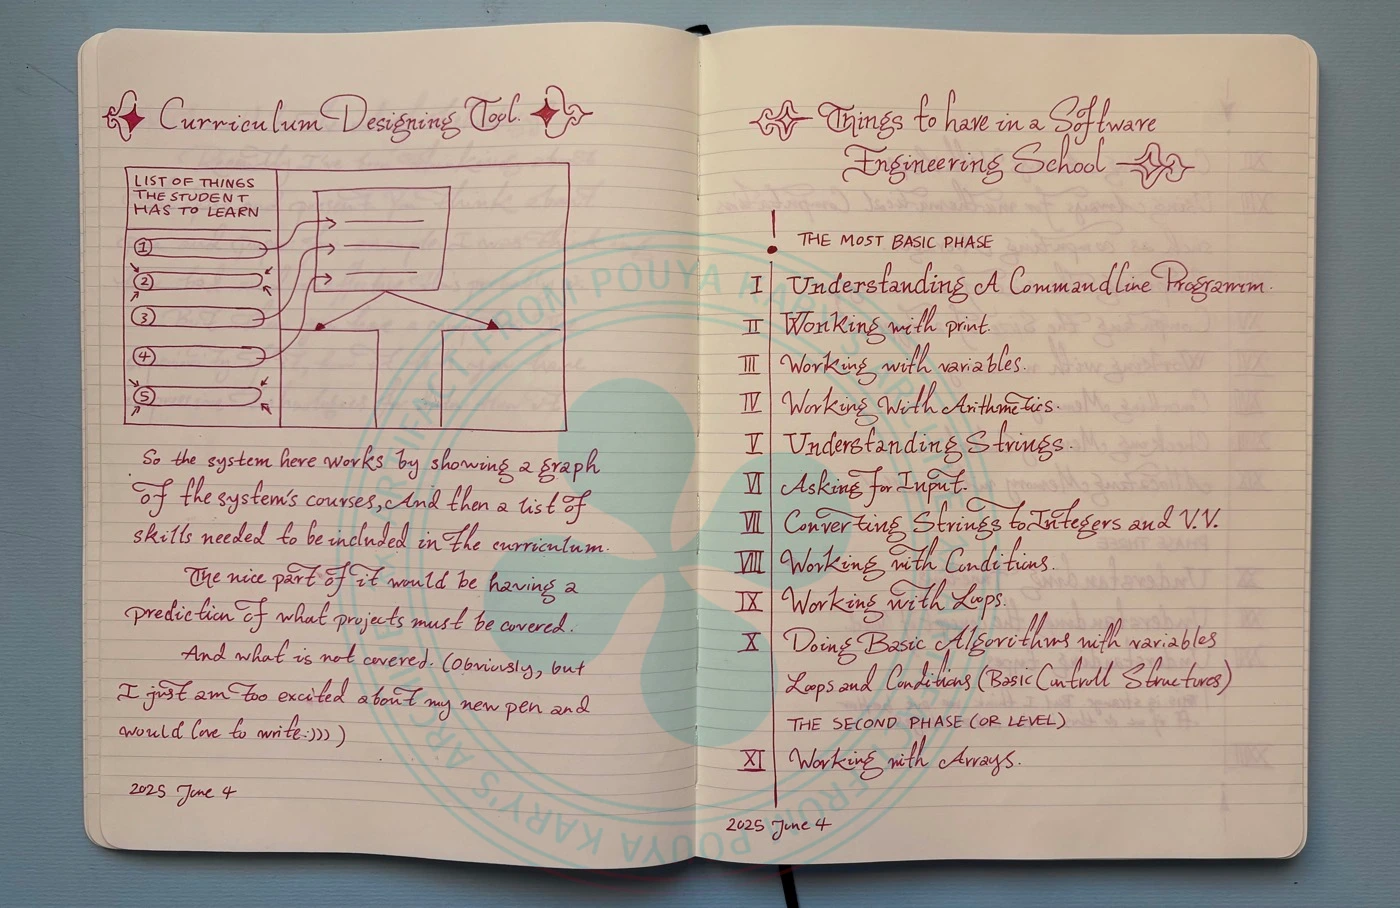 Curriculum Designing Tool.
LIST OF THINGS
THE STUDENT
HAS TO LEARN
1
2
3
4
5
So the system here works by showing a graph
of the system's courses, And then a list of
skills needed to be included in the curriculum.
The nice part of it would be having a
prediction of what projects must be covered.
And what is not covered. (Obviously, but
I just am too excited about my new pen and
would love to write:))) )
2025 June 4
Things to have in a Software
Engineering School
THE MOST BASIC PHASE
I Understanding A Commandline Programm.
II Working with print.
III Working with variables.
IV Working With Arithmetics.
V Understanding Strings.
VI Asking for Input.
VII Converting Strings to Integers and V.V.
VIII Working with Conditions.
IX Working with Loops.
X Doing Basic Algorithms with variables
Loops and Conditions (Basic Controll Structures)
THE SECOND PHASE (OR LEVEL)
XI Working with Arrays.
2025 June 4